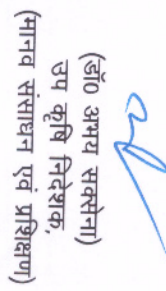 (डॉ0 अभय सक्सेना)
उप कृषि निदेशक,
(मानव संसाधन एवं प्रशिक्षण)